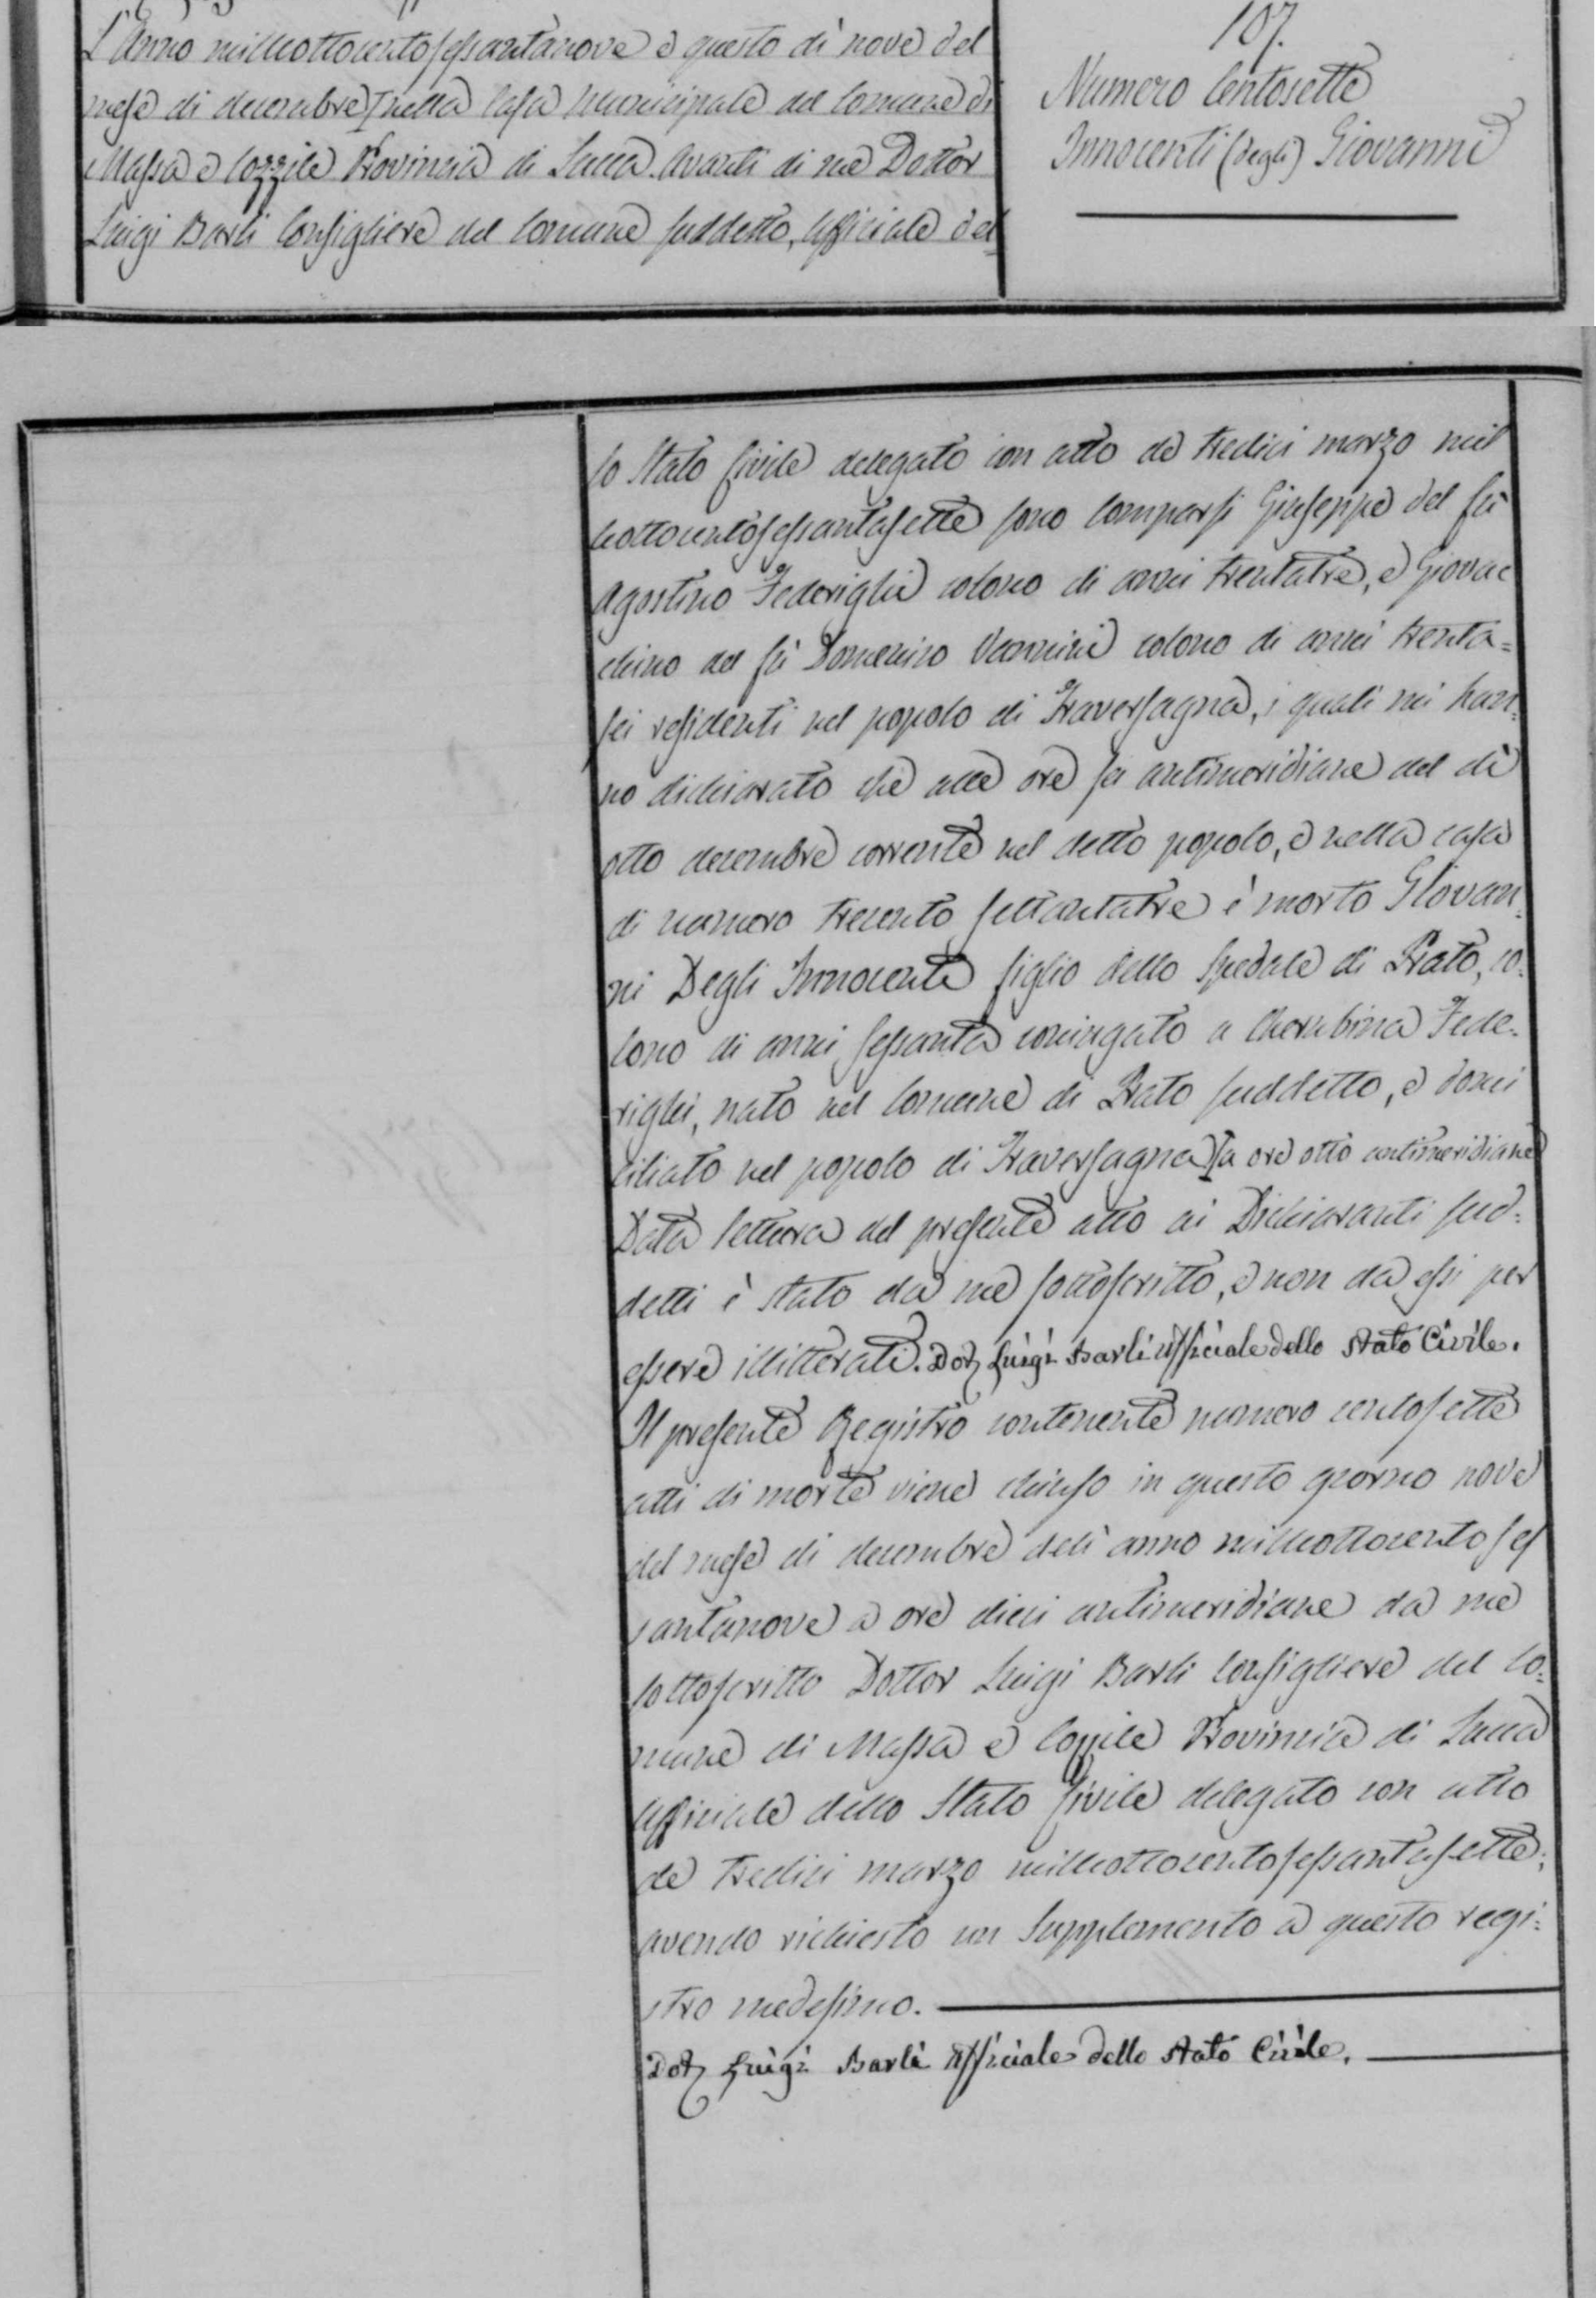 L'Anno milleottocentosessantanove e questo dì nove del
mese di decembre nella Casa Municipale del Comune di
Massa e Cozzile Provincia di Lucca. Avanti di me Dottor
Luigi Barli Consigliere del Comune suddetto, Ufficiale del-
107.
Numero Centosette
Innocenti (degli) Giovanni
lo Stato Civile delegato con atto de tredici marzo mil
leottocentosessantasette sono comparsi Giuseppe del fù
Agostino Federighi colono di anni trentatre, e Giovac
chino del fù Domenico Vannini colono di anni trenta=
sei residenti nel popolo di Traversagna, i quali mi han:
no dichiarato che alle ore sei antimeridiane del dì
otto decembre corrente nel detto popolo, e nella casa
di numero trecento settantatre è morto Giovan:
ni Degli Innocenti figlio dello Spedale di Prato, co:
lono di anni sessanta coniugato a Cherubina Fede:
righi, nato nel Comune di Prato suddetto, e domi
ciliato nel popolo di Traversagna a ore otto antimeridiane
Data lettura del presente atto ai Dichiaranti sud:
detti è stato da me sottoscritto, e non da essi per
essere illitterati. Dot Luigi Barli Ufficiale dello Stato Civile.
Il presente Registro contenente numero centosette
atti di morte viene chiuso in questo giorno nove
del mese di decembre dell'anno milleottocentoses
santanove a ore dieci antimeridiane da me
sottoscritto Dottor Luigi Barli Consigliere del Co:
mune di Massa e Cozzile Provincia di Lucca
Ufficiale dello Stato Civile delegato con atto
de tredici marzo milleottocentosessantasette;
avendo richiesto un Supplemento a questo regi:
stro medesimo.
Dot Luigi Barli Ufficiale dello Stato Civile.